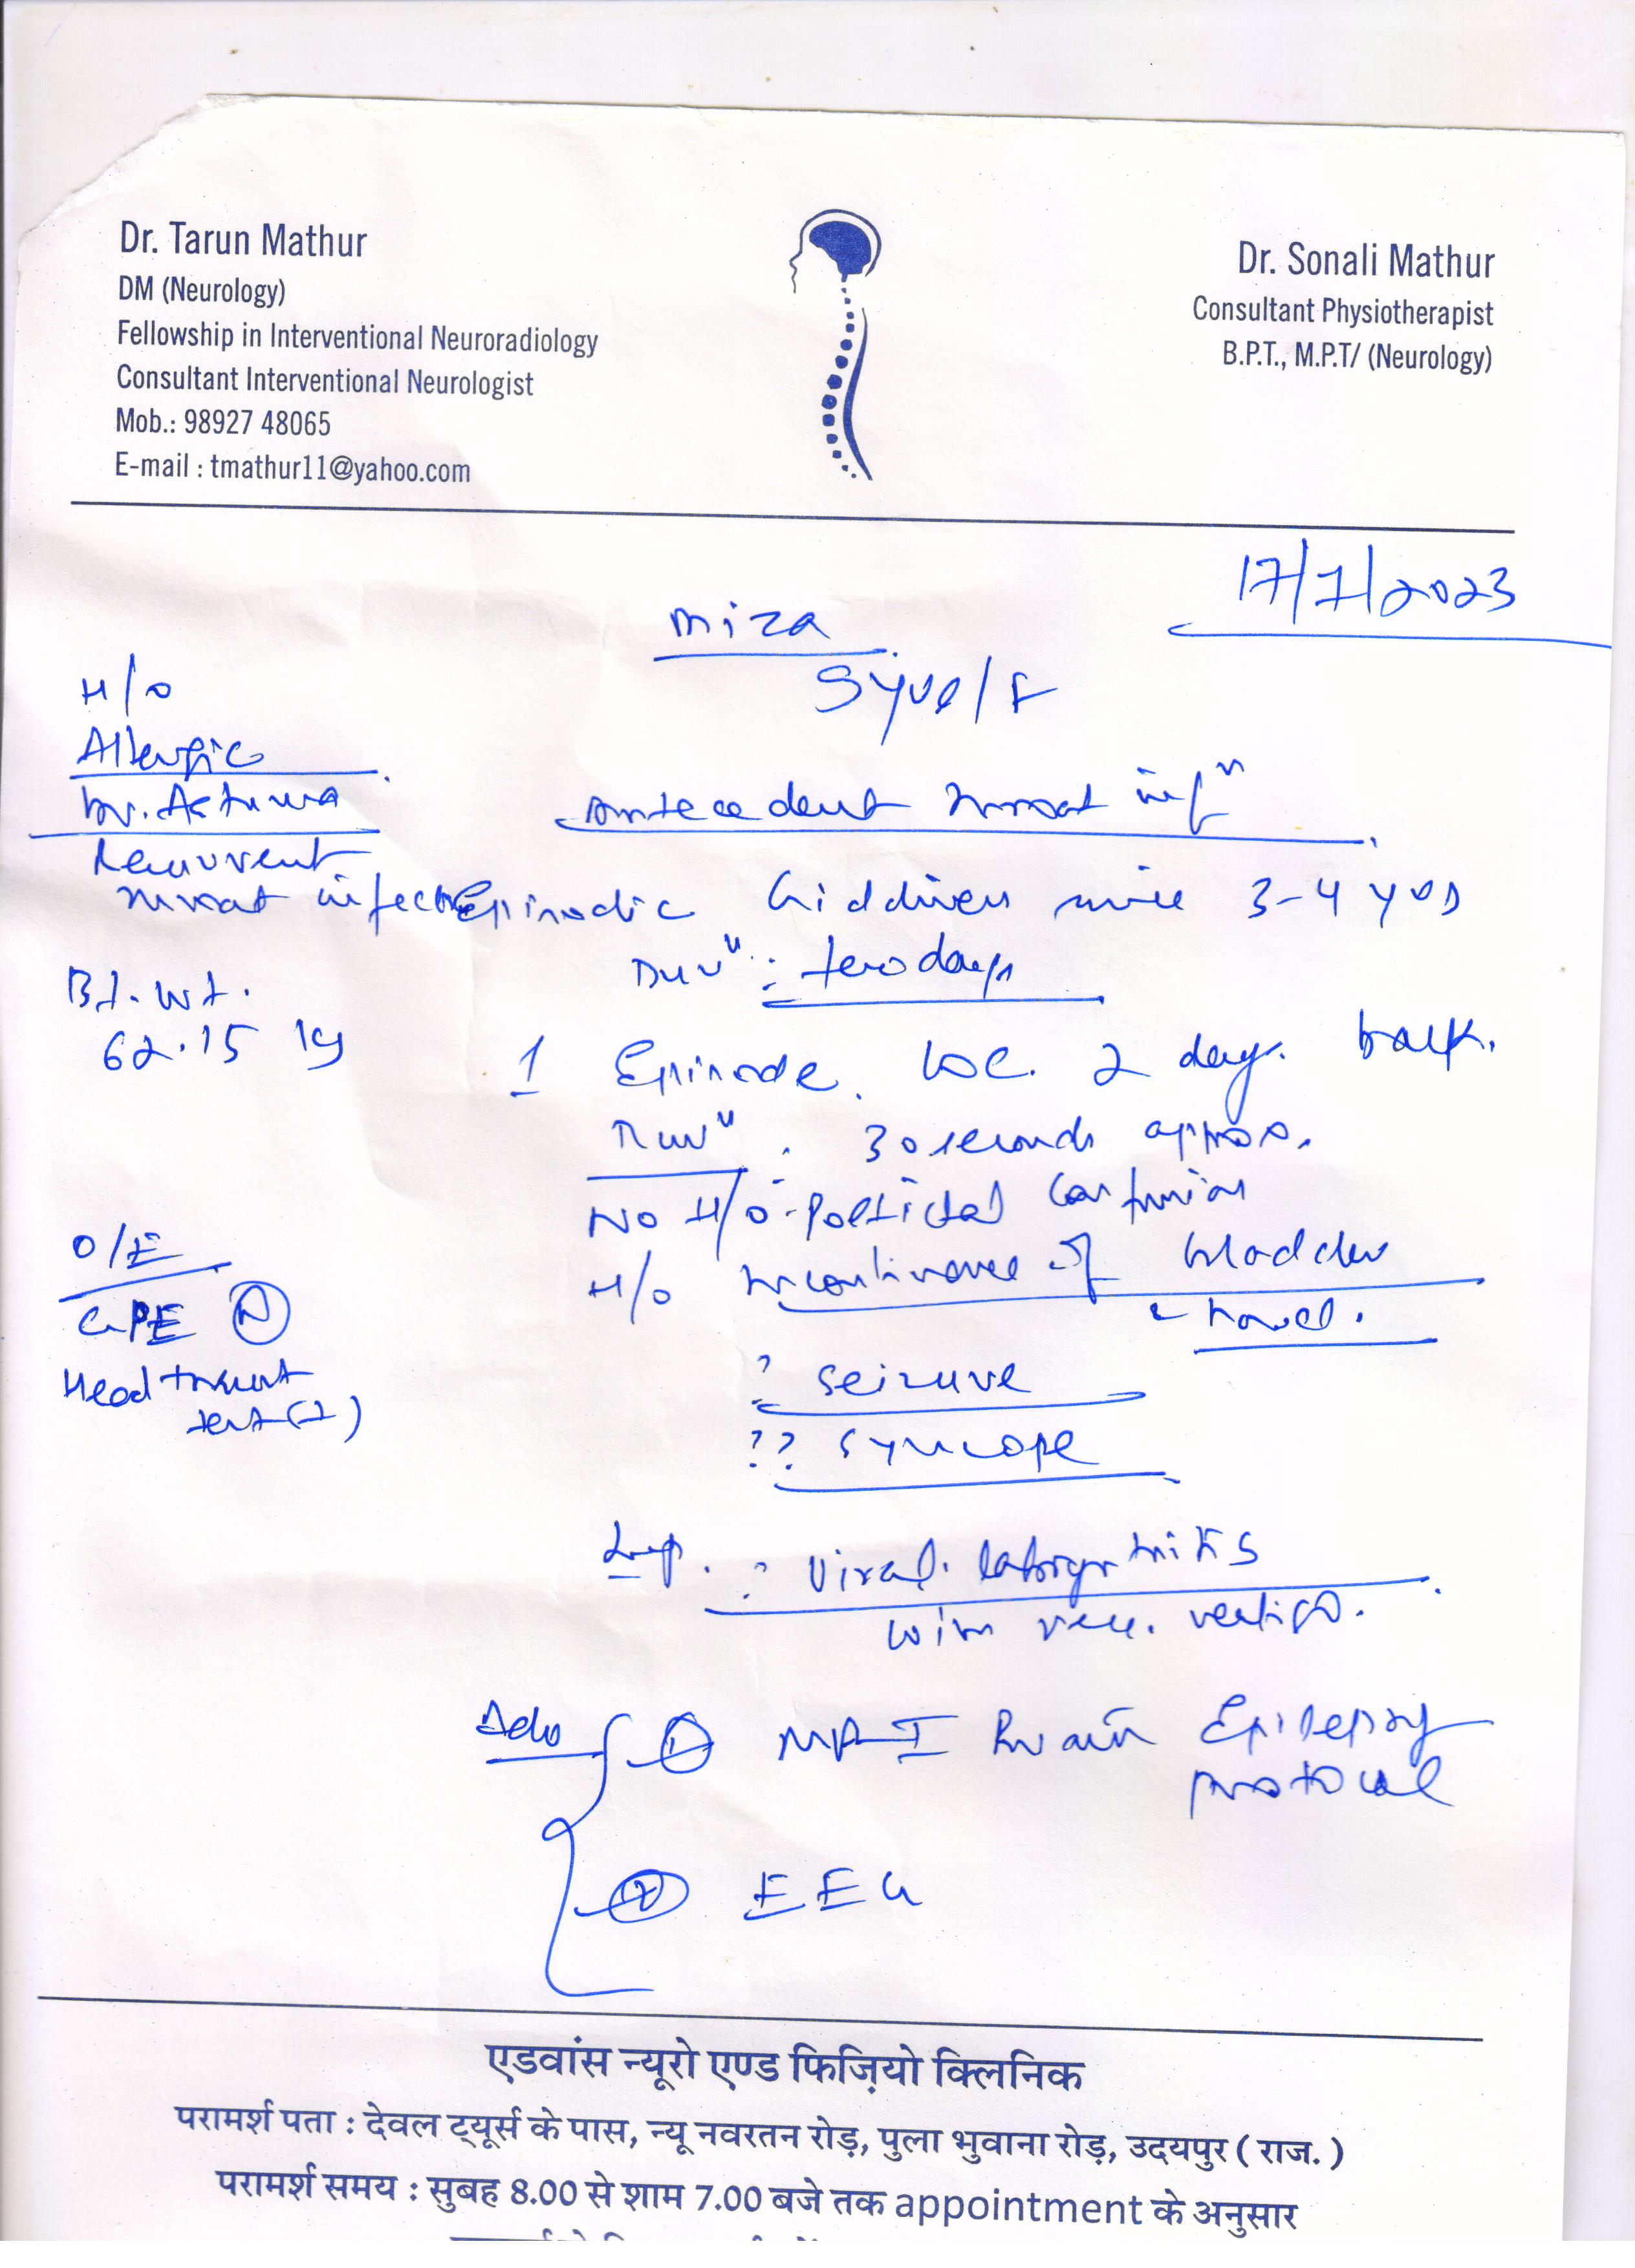 Dr. Tarun Mathur
DM (Neurology)
Fellowship in Interventional Neuroradiology
Consultant Interventional Neurologist
Mob.: 98927 48065
E-mail : tmathur11@yahoo.com
Dr. Sonali Mathur
Consultant Physiotherapist
B.P.T., M.P.T/ (Neurology)
17/7/2023
miza
H/o
Allergic
br. Asthma
Recurrent
throat infection
Bd. wt.
62.15 kg
O/E
GPE N
Head thrust
test
Antecedent throat infn
Episodic Giddiness since 3-4 yrs
Durn : few days
1 Episode. LOC. 2 days. back.
Durn : 30 seconds approx.
No H/o - Postictal confusion
H/o Incontinence of bladder
bowel.
? Seizure
?? Syncope
Imp. : ? Viral. labrynthitis
with rec. vertigo.
Adv
① MRI Brain Epilepsy
protocol
② EEG
एडवांस न्यूरो एण्ड फिज़ियो क्लिनिक
परामर्श पता : देवल ट्यूर्स के पास, न्यू नवरतन रोड़, पुला भुवाना रोड़, उदयपुर ( राज. )
परामर्श समय : सुबह 8.00 से शाम 7.00 बजे तक appointment के अनुसार